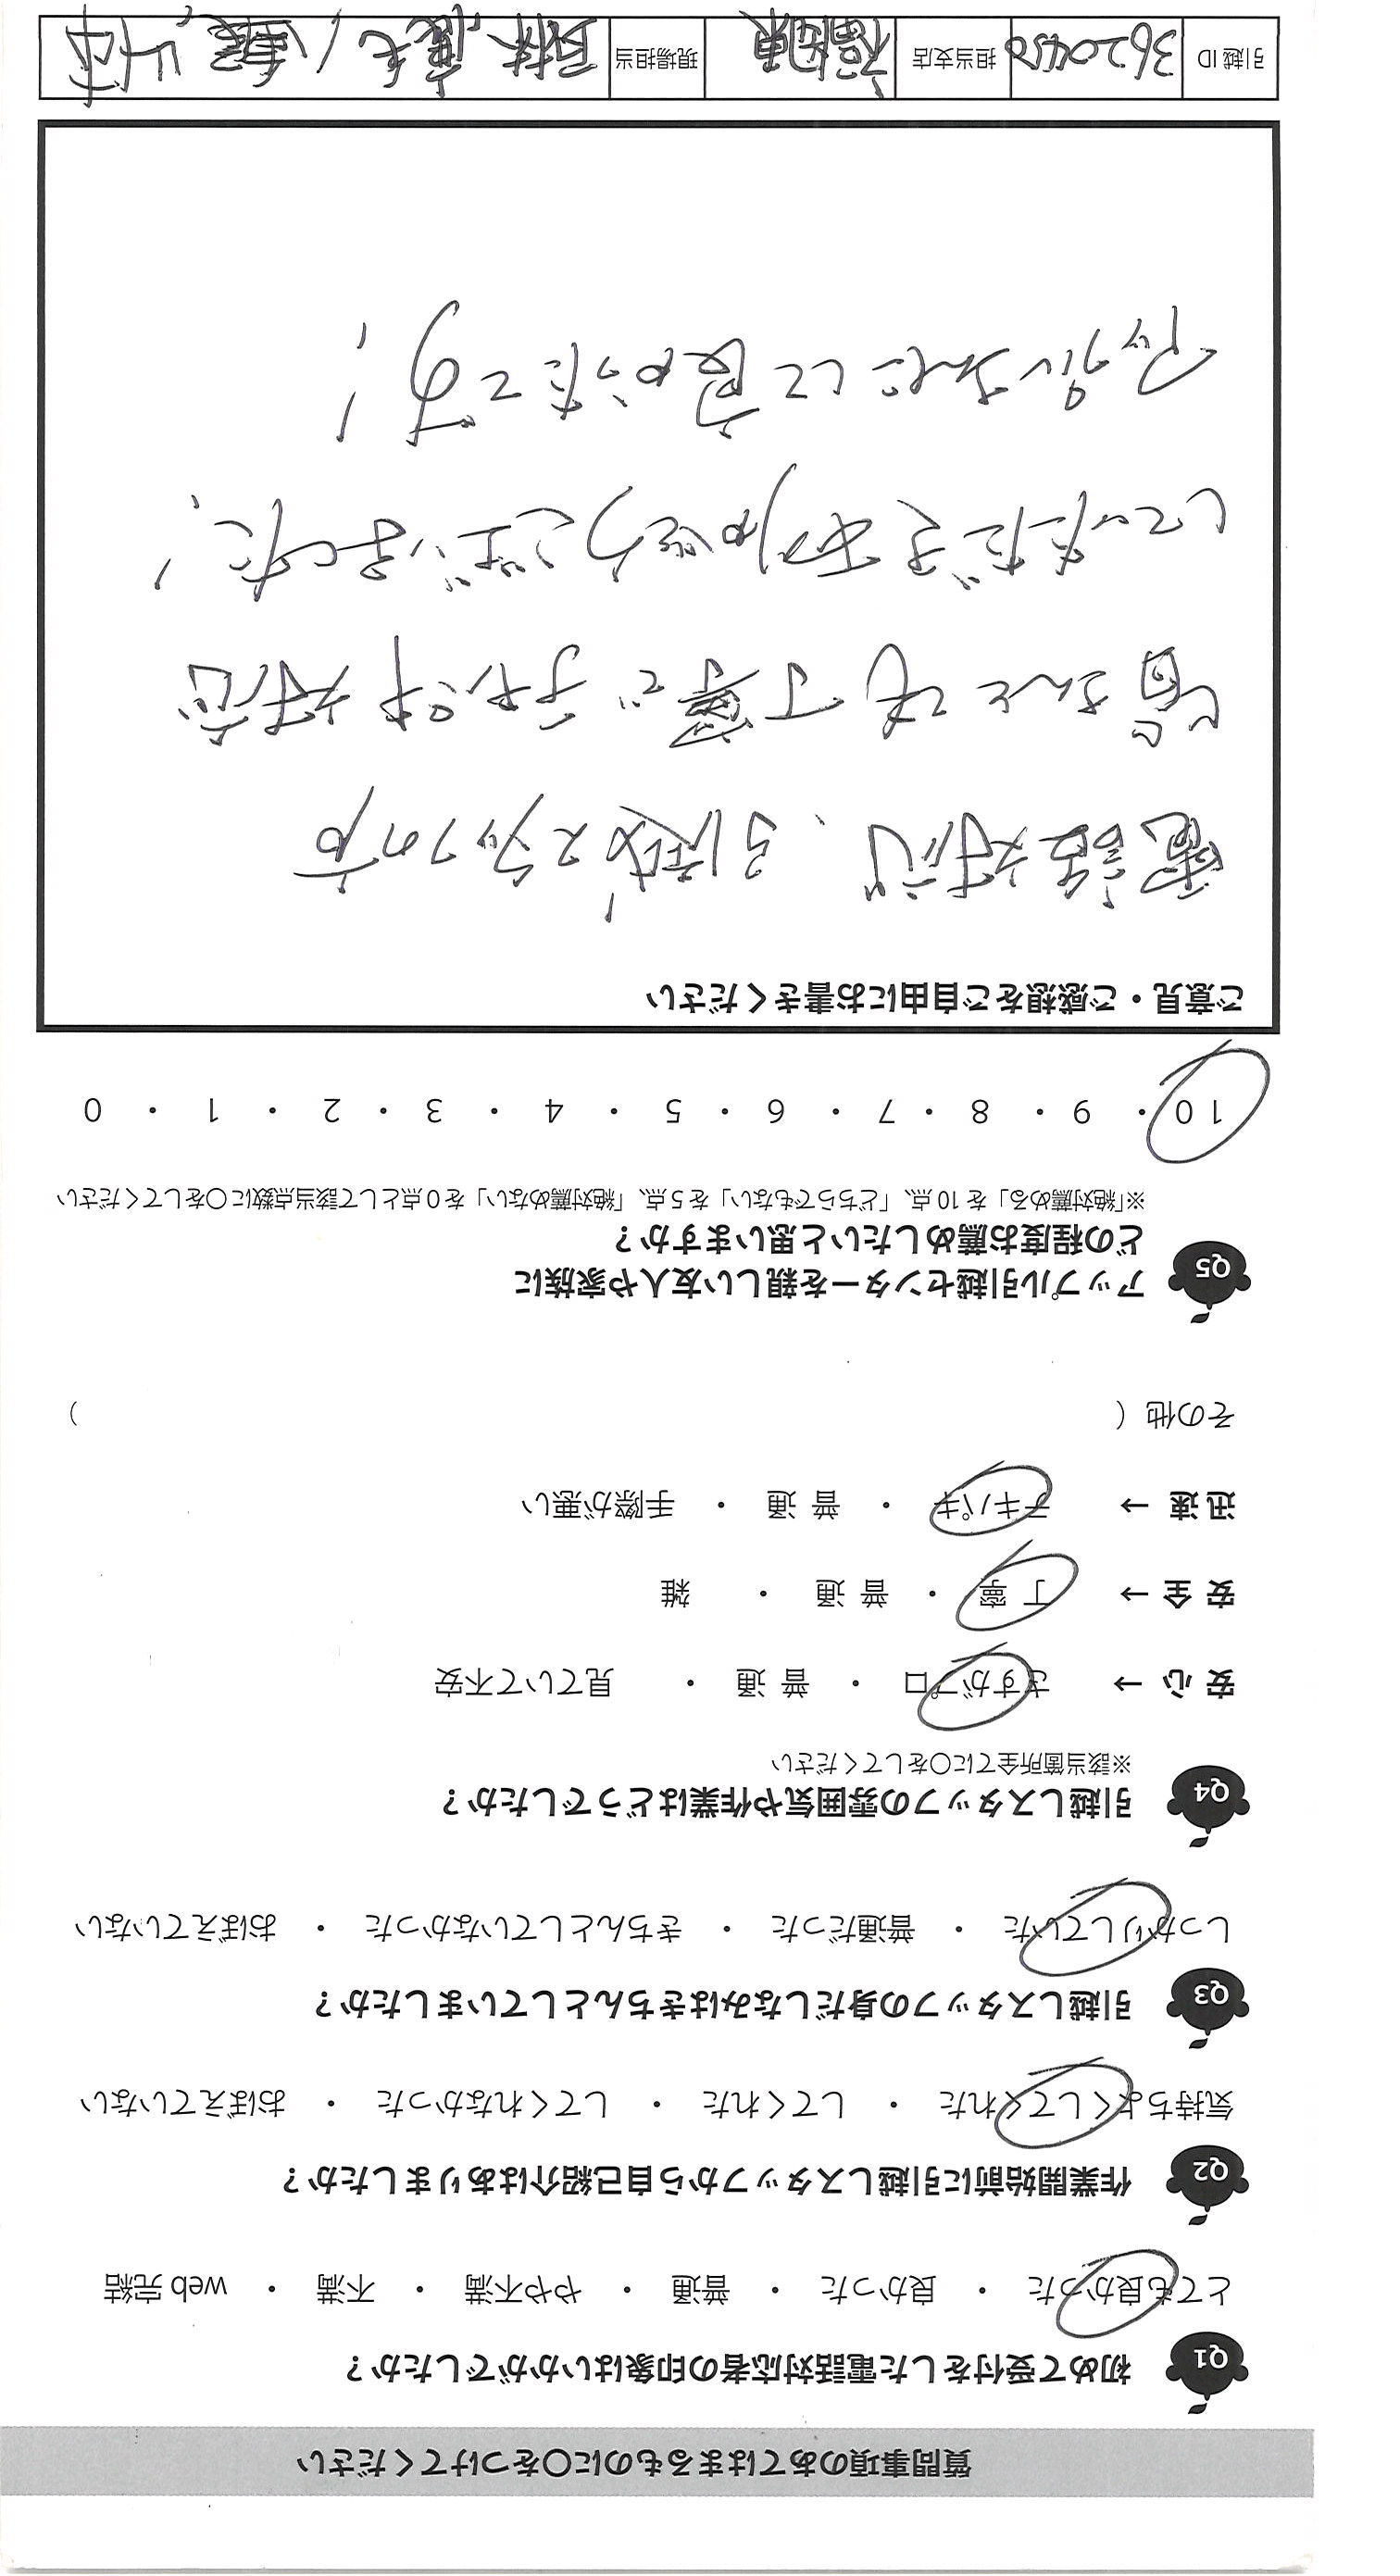 質問事項のあてはまるものに〇をつけてください
Q1 初めて受付をした電話対応者の印象はいかがでしたか？
とても良かった ・ 良かった ・ 普通 ・ やや不満 ・ 不満 ・ web 完結
Q2 作業開始前に引越しスタッフから自己紹介はありましたか？
気持ちよくしてくれた ・ してくれた ・ してくれなかった ・ おぼえていない
Q3 引越しスタッフの身だしなみはきちんとしていましたか？
しっかりしていた ・ 普通だった ・ きちんとしていなかった ・ おぼえていない
Q4 引越しスタッフの雰囲気や作業はどうでしたか？
※該当箇所全てに〇をしてください
安 心 → さすがプロ ・ 普 通 ・ 見ていて不安
安 全 → 丁 寧 ・ 普 通 ・ 雑
迅 速 → テキパキ ・ 普 通 ・ 手際が悪い
その他（ ）
Q5 アップル引越センターを親しい友人や家族に
どの程度お薦めしたいと思いますか？
※「絶対薦める」を 10 点、「どちらでもない」を 5 点、「絶対薦めない」を 0 点として該当点数に〇をしてください
10 ・ 9 ・ 8 ・ 7 ・ 6 ・ 5 ・ 4 ・ 3 ・ 2 ・ 1 ・ 0
ご意見・ご感想をご自由にお書きください
電話対応、引越スタッフの方
皆さんとても丁寧で素早く対応
していただきありがとうございました。
アップルさんにして良かったです！
引越 ID 3620450 担当支店 福岡東 現場担当